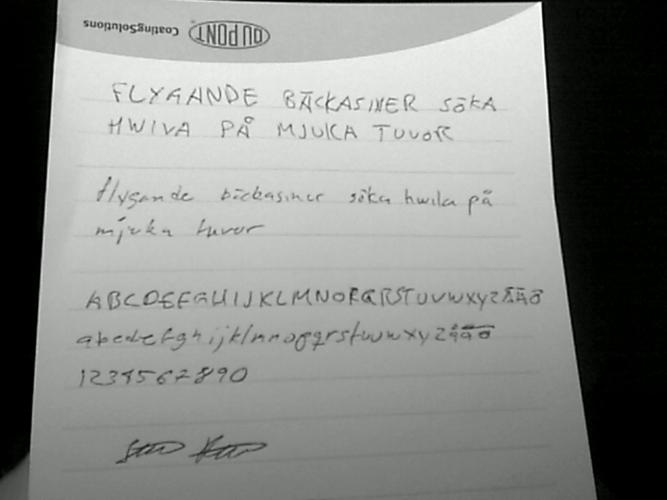 DU PONT CoatingSolutions
FLYGANDE BÄCKASINER SÖKA
HWIVA PÅ MJUKA TUVOR
flygande bäckasiner söka hwila på
mjuka tuvor
ABCDEFGHIJKLMNOPQRSTUVWXYZÅÄÖ
abcdefghijklmnopqrstuvwxyzåäö
1234567890